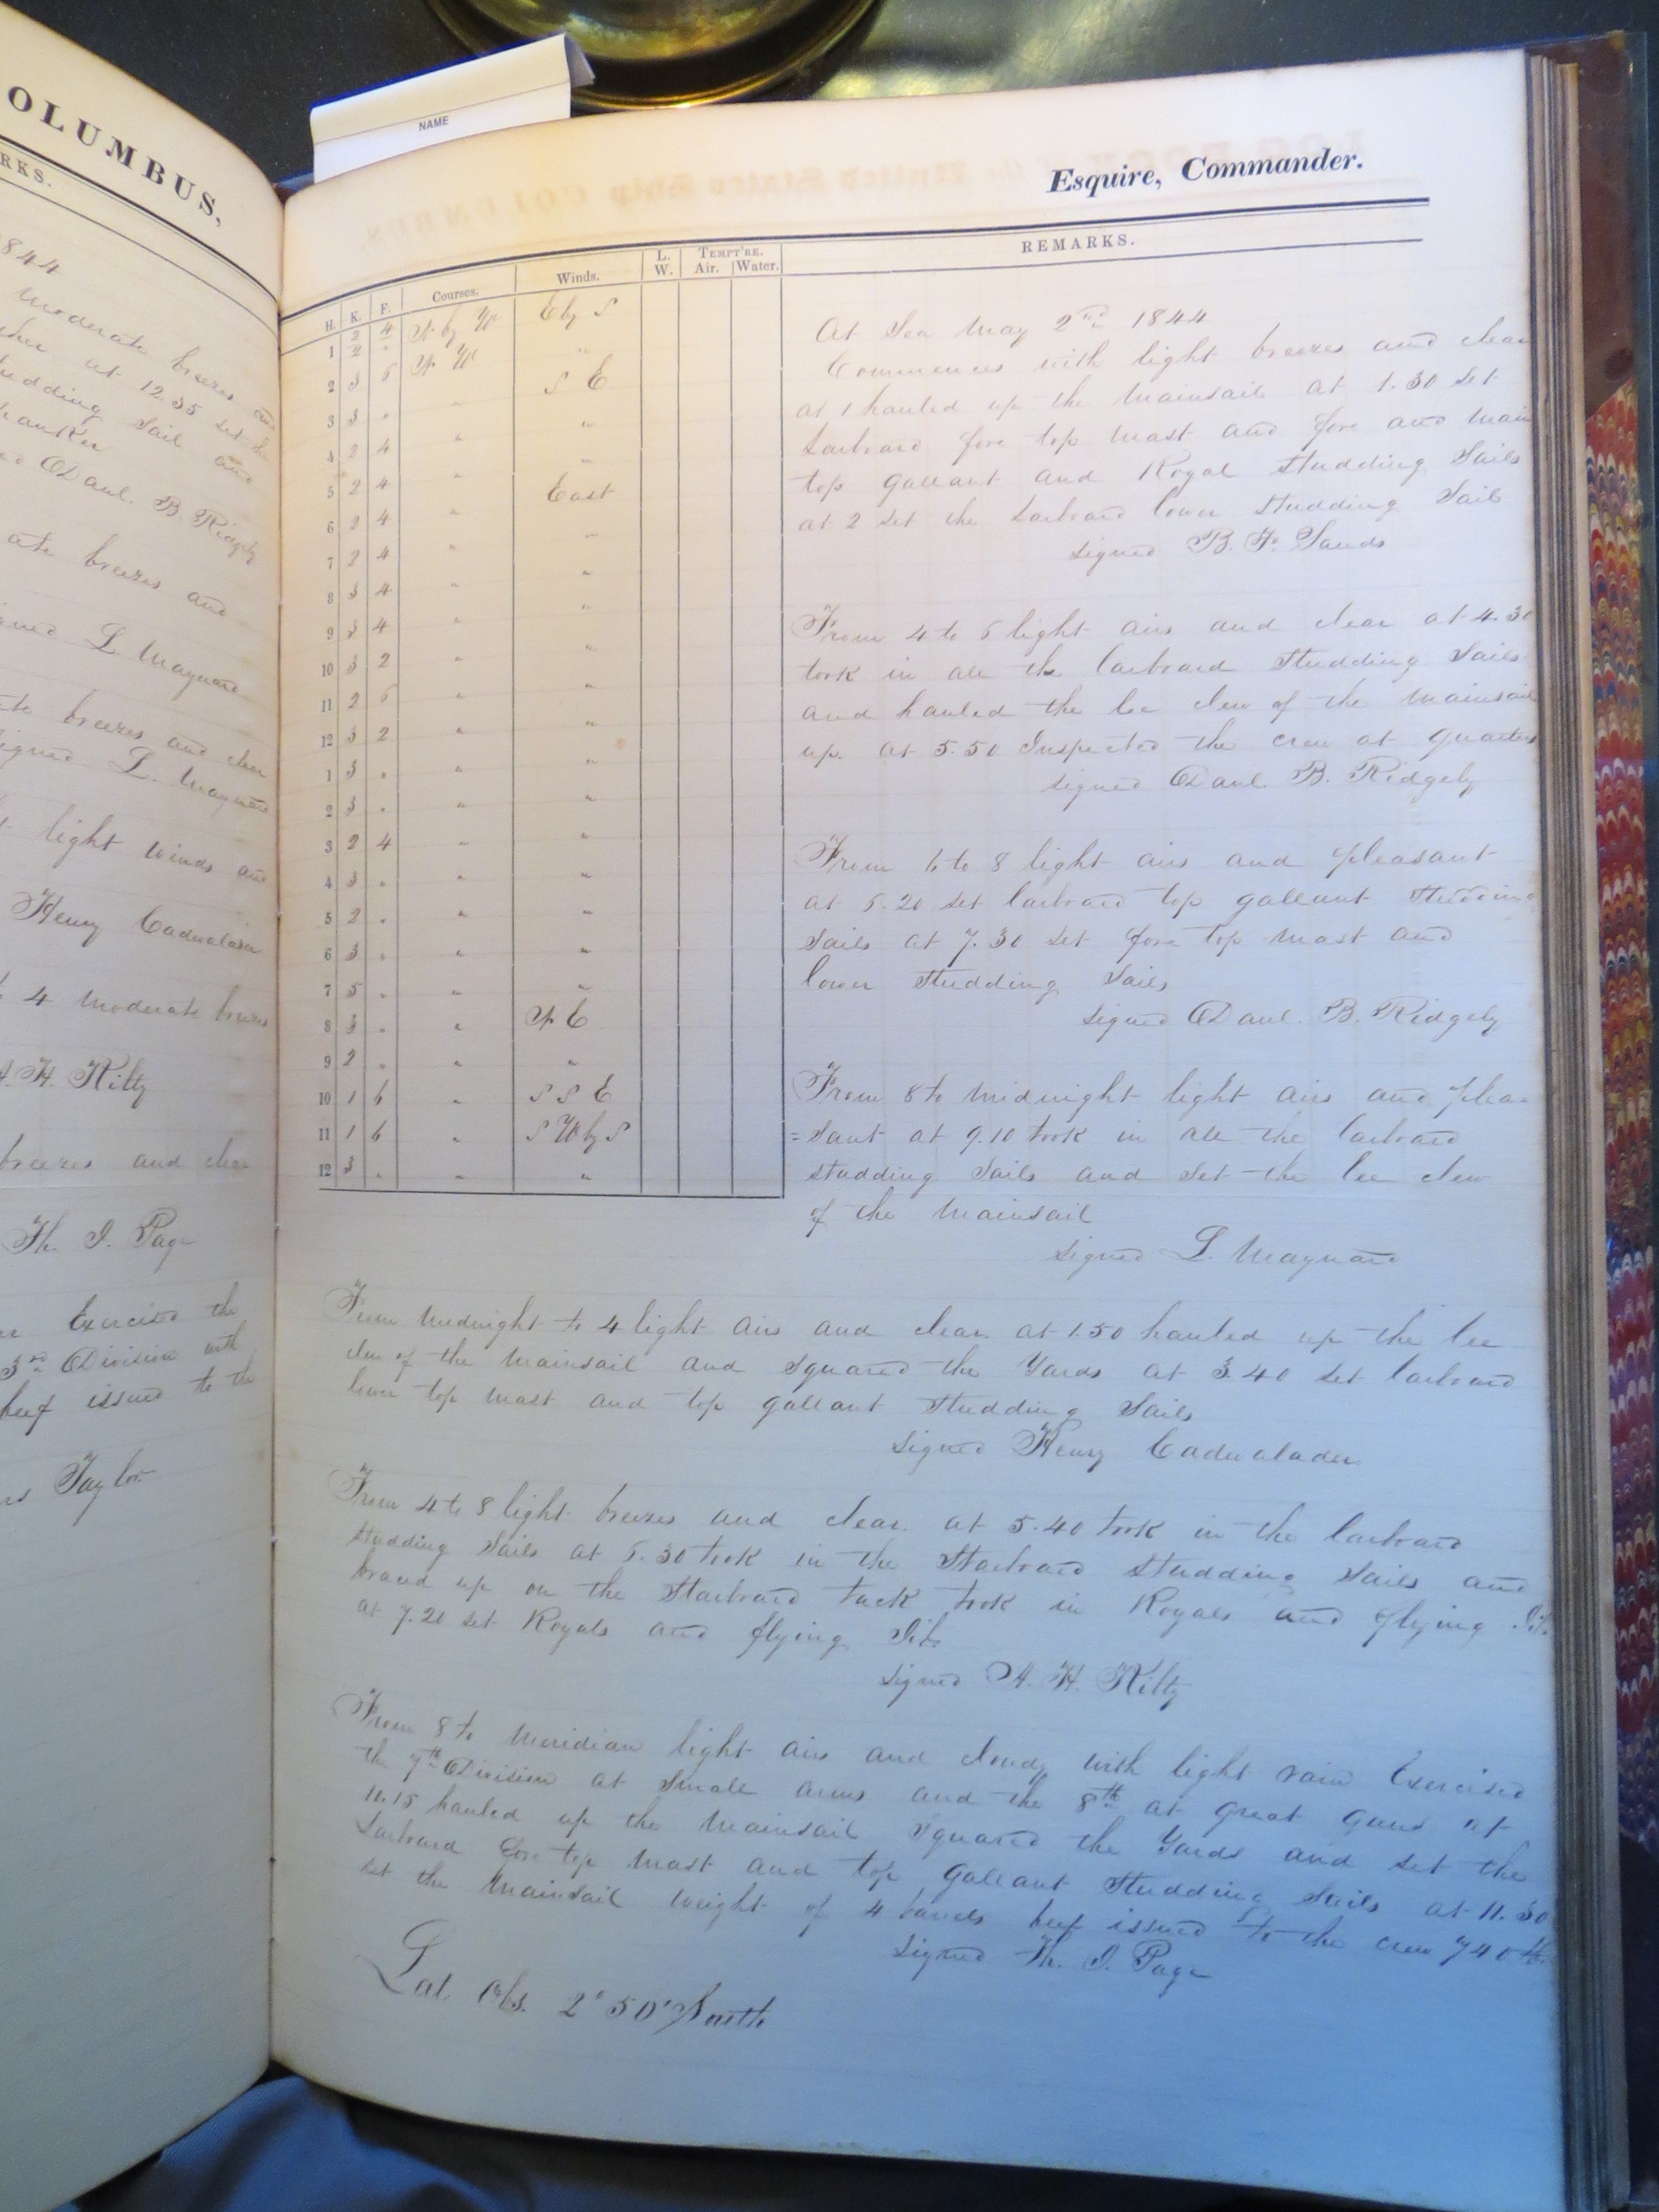 OLUMBUS,
RKS.
1844
moderate breezes and
at 12.35 set the
studding Sail and
spanker
Danl. B. Ridgely
ate breezes and
signed L. Maynard
breezes and clear
signed L. Maynard
light winds and
Henry Cadwalader
4 moderate breezes
A. H. Kilty
breezes and clear
Th. J. Page
Exercised the
3rd Division with
beef issued to the
Taylor
NAME
Esquire, Commander.
H. K. F. Courses. Winds. L. W. TEMPT'RE. Air. Water. REMARKS.
2 4 N by W E by S
1 2 " N W "
2 3 5 S E
3 3 " " "
4 2 4 " "
5 2 4 " East
6 2 4 " "
7 2 4 " "
8 3 4 " "
9 3 4 " "
10 3 2 " "
11 2 5 " "
12 3 2 " "
1 3 " " "
2 3 " " "
3 2 4 " "
4 3 " " "
5 2 " " "
6 3 " " "
7 5 " " "
8 3 " " N E
9 2 " " "
10 1 6 " S S E
11 1 6 " S W by S
12 3 " " "
At Sea May 2nd 1844
Commences with light breezes and clear
at 1 hauled up the Mainsail at 1.30 set
Larboard fore top mast and fore and main
top gallant and Royal Studding Sails
at 2 set the Larboard lower Studding Sail
signed B. F. Sands
From 4 to 6 light airs and clear at 4.30
took in all the larboard Studding Sails
and hauled the lee clew of the mainsail
up. at 5.50 Inspected the crew at quarters
signed Danl. B. Ridgely
From 6 to 8 light airs and pleasant
at 6.20 set larboard top gallant Studding
Sails at 7.30 set fore top mast and
lower Studding Sails
signed Danl. B. Ridgely
From 8 to midnight light airs and plea=
=sant at 9.10 took in all the larboard
studding Sails and set the lee clew
of the Mainsail
signed L. Maynard
From Midnight to 4 light airs and clear. at 1.50 hauled up the lee
clew of the Mainsail and squared the Yards at 3.40 set larboard
lower top mast and top gallant Studding Sails
signed Henry Cadwalader
From 4 to 8 light breezes and clear. at 5.40 took in the larboard
studding Sails at 6.30 took in the Starboard Studding Sails and
braced up on the Starboard tack took in Royals and flying Jib.
at 7.20 set Royals and flying Jib
signed A. H. Kilty
From 8 to Meridian light airs and cloudy with light rain Exercised
the 7th Division at small arms and the 8th at great guns at
11.15 hauled up the Mainsail squared the Yards and set the
Larboard fore top mast and top gallant Studding Sails at 11.30
set the Mainsail weight of 4 barrels beef issued to the crew 740 lbs
signed Th. J. Page
Lat. Obs. 2° 50' South